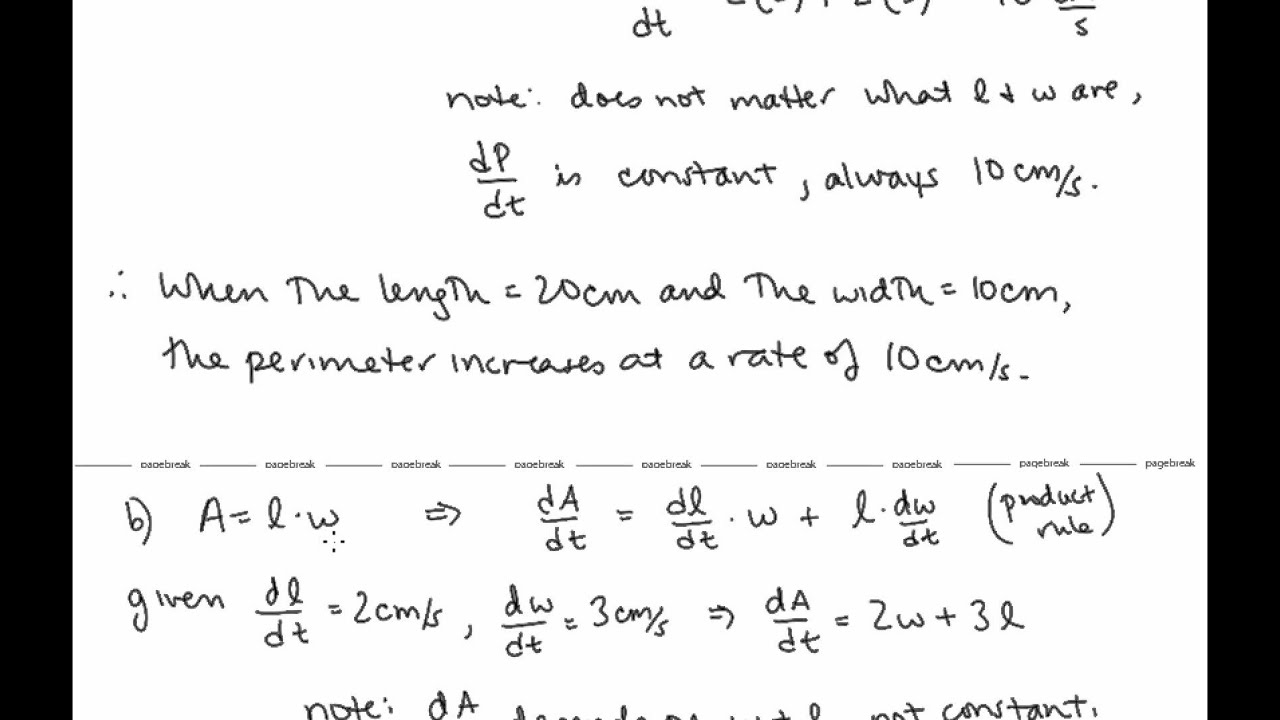 dt s
note: does not matter what l & w are,
dP/dt is constant, always 10cm/s.
∴ When The length = 20cm and The width = 10cm,
the perimeter increases at a rate of 10cm/s.
pagebreak pagebreak pagebreak pagebreak pagebreak pagebreak pagebreak pagebreak pagebreak
b) A = l·w ⇒ dA/dt = dl/dt · w + l · dw/dt (product rule)
given dl/dt = 2cm/s, dw/dt = 3cm/s ⇒ dA/dt = 2w + 3l
note: dA not constant.